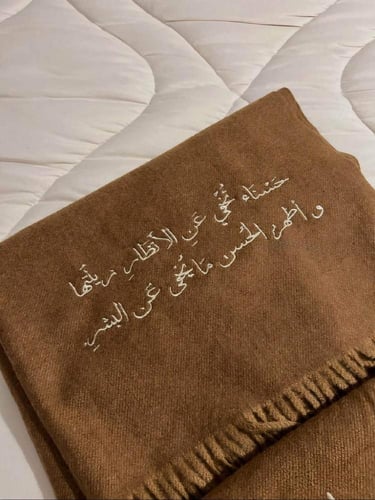 حَسْنَاء تُخْفِي عَنِ الأنْظَارِ زِينَتَها
و أطهر الحُسن مَا يُخْفى عَن البشرِ